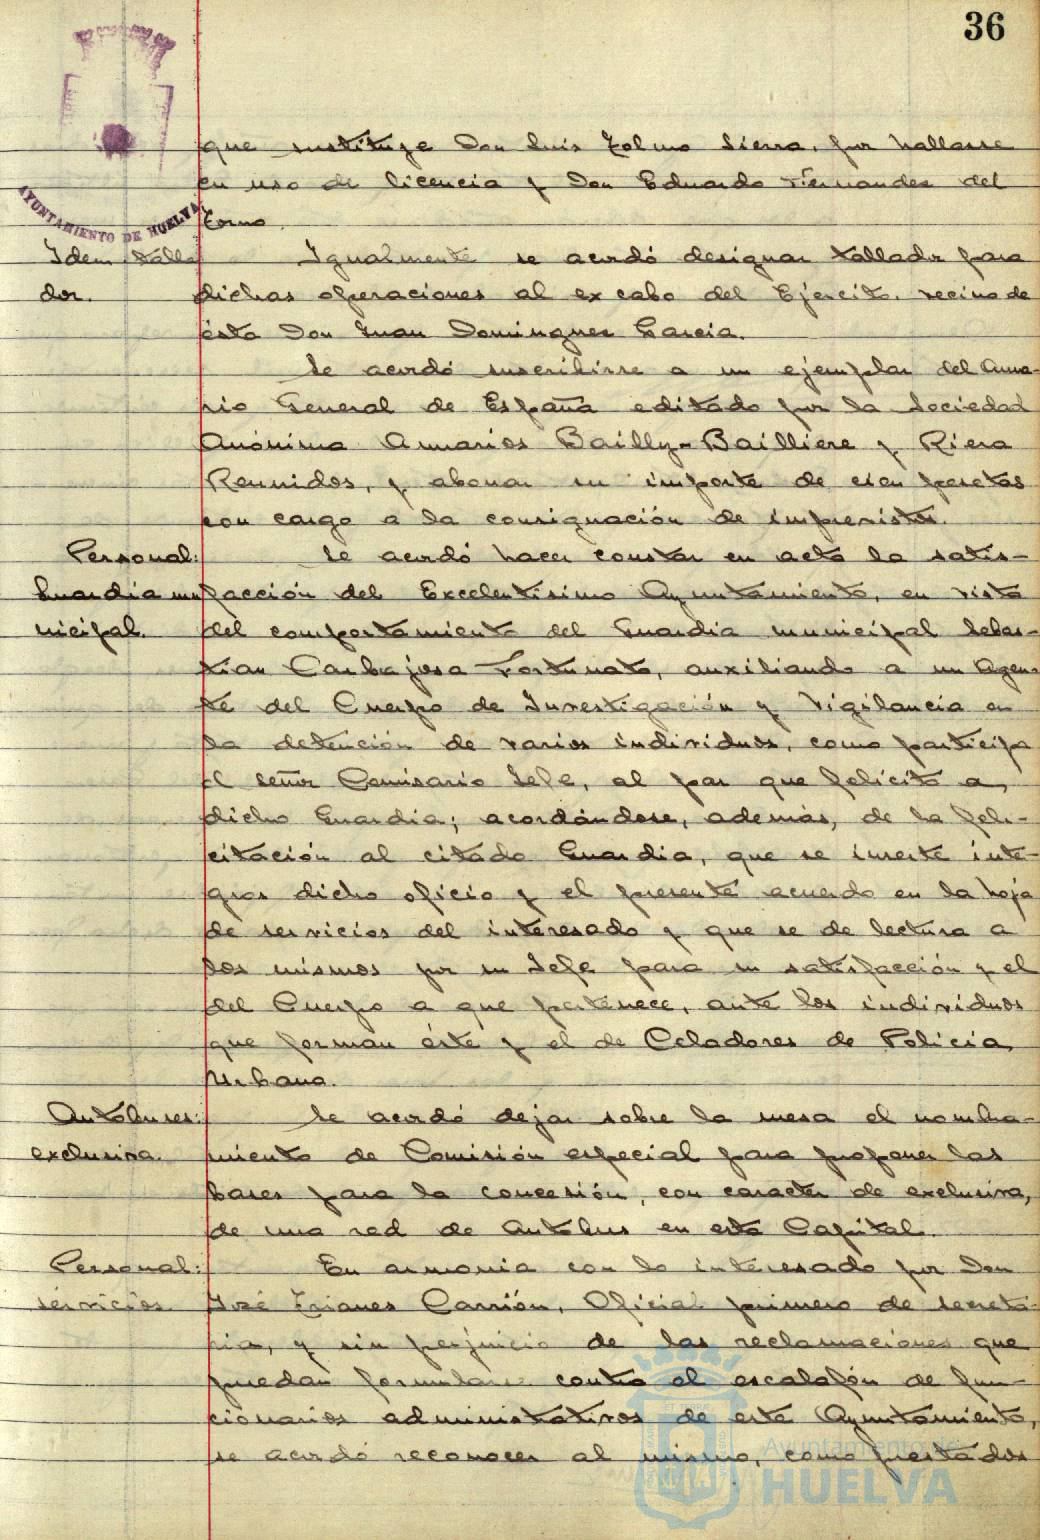 36
AYUNTAMIENTO DE HUELVA
que sustituye Don Luis Tolmo Sierra, por hallarse
en uso de licencia y Don Eduardo Fernandez del
Torno.
Idem talla
dor.
Igualmente se acordó designar tallador para
dichas operaciones al ex cabo del Ejercito, vecino de
ésta Don Juan Dominguez Garcia.
Se acordó suscribirse a un ejemplar del Anua-
rio General de España editado por la Sociedad
Anónima Anuarios Bailly-Bailliere y Riera
Reunidos, y abonar su importe de cien pesetas
con cargo a la consignación de imprevistos.
Personal:
Guardia mu
nicipal.
Se acordó hacer constar en acta la satis-
facción del Excelentisimo Ayuntamiento, en vista
del comportamiento del Guardia municipal Sebas-
tian Carbajosa Fortunato, auxiliando a un Agen-
te del Cuerpo de Investigación y Vigilancia en
la detención de varios individuos, como participa
el señor Comisario Jefe, al par que felicita a
dicho Guardia; acordándose, además, de la feli-
citación al citado Guardia, que se inserte inte-
gros dicho oficio y el presente acuerdo en la hoja
de servicios del interesado y que se de lectura a
los mismos por su Jefe para su satisfacción y el
del Cuerpo a que pertenece, ante los individuos
que forman éste y el de Celadores de Policia
Urbana.
Autobuses:
exclusiva.
Se acordó dejar sobre la mesa el nombra-
miento de Comisión especial para proponer las
bases para la concesión, con caracter de exclusiva,
de una red de autobus en esta Capital.
Personal:
servicios
En armonia con lo interesado por Don
José Trianes Carrión, Oficial primero de secreta-
ria, y sin perjuicio de las reclamaciones que
puedan formularse contra el escalafón de fun-
cionarios administrativos de este Ayuntamiento,
se acordó reconocer al mismo, como prestados
Ayuntamiento de
HUELVA